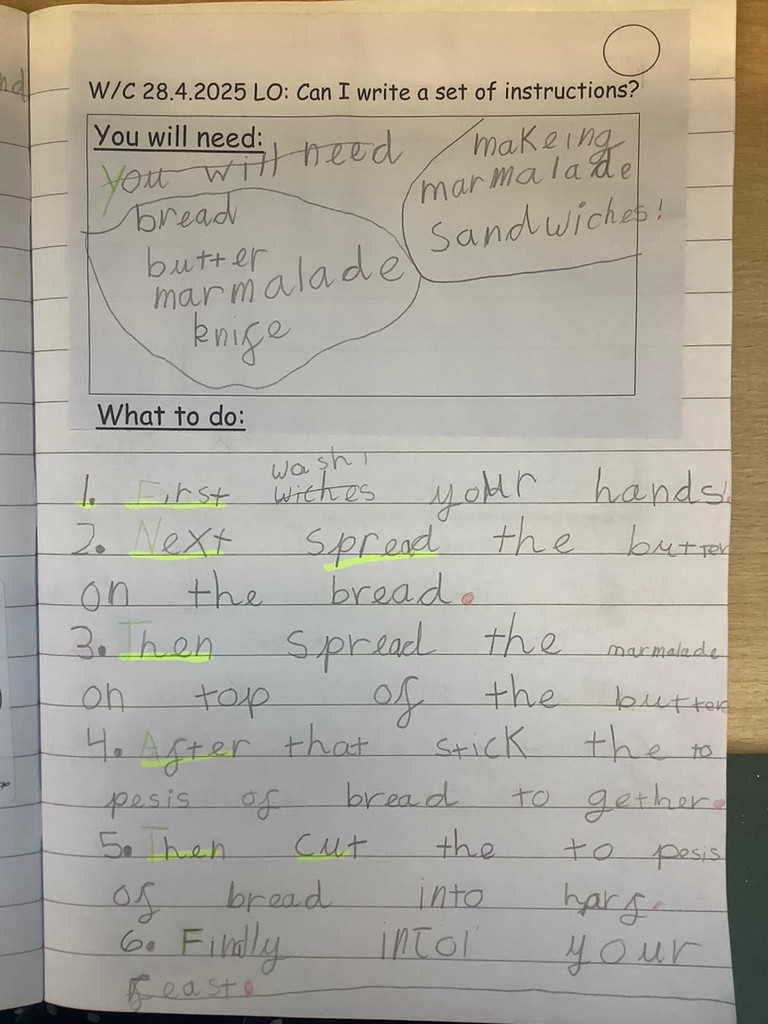 nd
W/C 28.4.2025 LO: Can I write a set of instructions?
You will need:
You will need
makeing
marmalade
Sandwiches!
bread
butter
marmalade
knife
What to do:
wash
1. First withes your hands.
2. Next spread the butter
on the bread.
3. Then spread the marmalade
on top of the butter
4. After that stick the to
pesis of bread to gether.
5. Then cut the to pesis
of bread into harf.
6. Findly your
feast.